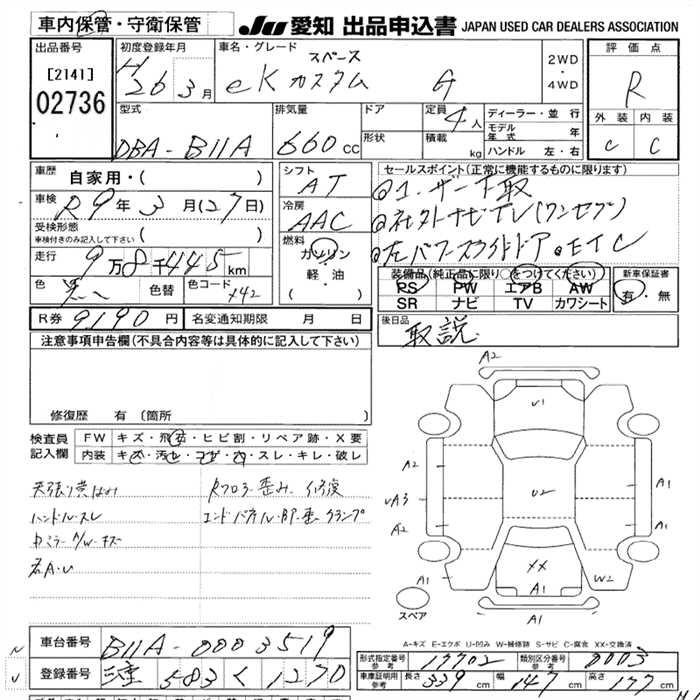 車内保管・守衛保管 JU 愛知 出品申込書 JAPAN USED CAR DEALERS ASSOCIATION
出品番号
[2141]
02736
初度登録年月
H26年3月
車名・グレード
スペース
eKカスタム G
2WD
・
4WD
評価点
R
外装 内装
C C
型式
DBA-B11A
排気量
660cc
ドア
形状
定員
4人
積載
kg
ディーラー・並行
モデル年式 年
ハンドル 左・右
車歴 自家用・( )
車検 R9年3月(27日)
受検形態
車検付きのみ記入して下さい ( )
走行 9万8千445km
色 黒 色替 色コード X42
R券 9190円 名変通知期限 月 日
シフト
AT
冷房
AAC
燃料
ガソリン
軽・油
( )
セールスポイント(正常に機能するものに限ります)
◎1オーナー下取
◎社外ナビTV(ワンセグ)
◎左パワースライドドア◎ETC
装備品(純正品に限り○をつけてください)
PS PW エアB AW
SR ナビ TV カワシート
新車保証書
有・無
後日品
取説
注意事項申告欄(不具合内容等は具体的に記入して下さい)
修復歴 有(箇所 )
検査員記入欄
FW キズ・飛石・ヒビ割・リペア跡・X要
内装 キズ・汚レ・コゲ・穴・スレ・キレ・破レ
天張り黄ばみ
ハンドルスレ
Rフロアー歪み 修復
A2
U1
A2
UA3
A2
U2
A1
A1
XX
A1
A1
W2
A1
スペア
A-キズ E-エクボ U-凹み W-補修跡 S-サビ C-腐食 XX-交換済
車台番号 B11A-0003519
登録番号 三重 583 く 270
形式指定番号
参考
17702
類別区分番号
参考
0003
車庫証明用
参考
長さ 339cm 幅 147cm 高さ 177cm